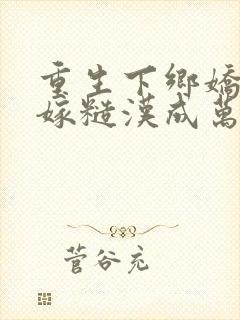 重生下鄉嬌
嫁糙漢成萬
菅谷充